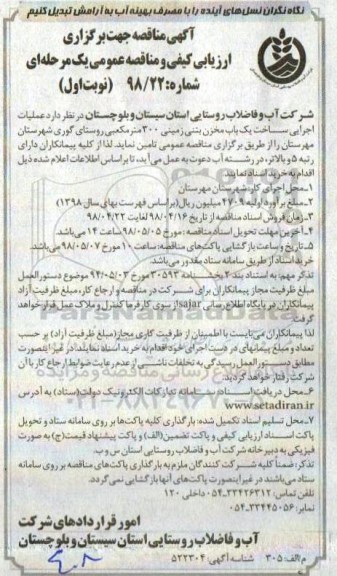 نگاه نگران نسل‌های آینده را با مصرف بهینه آب به آرامش تبدیل کنیم
آگهی مناقصه جهت برگزاری
ارزیابی کیفی و مناقصه عمومی یک مرحله‌ای
شماره: ۹۸/۲۲ (نوبت اول)
شرکت آب و فاضلاب روستایی استان سیستان و بلوچستان در نظر دارد عملیات
اجرایی ساخت یک باب مخزن بتنی زمینی ۳۰۰ مترمکعبی روستای گوری شهرستان
مهرستان را از طریق برگزاری مناقصه عمومی تامین نماید. لذا از کلیه پیمانکاران دارای
رتبه ۵ و بالاتر، در رشته آب دعوت به عمل می‌آید، تا براساس اطلاعات اعلام شده ذیل
اقدام به خرید اسناد نمایند.
۱-محل اجرای کار: شهرستان مهرستان
۲-مبلغ برآورد اولیه ۴۷۰۹ میلیون ریال(براساس فهرست بهای سال ۱۳۹۸)
۳-زمان فروش اسناد مناقصه از تاریخ ۹۸/۰۴/۱۶ لغایت ۹۸/۰۴/۲۲
۴-آخرین مهلت تحویل اسناد مناقصه: مورخ ۹۸/۰۵/۰۵ ساعت ۱۴ می‌باشد.
۵-تاریخ و ساعت بازگشایی پاکت‌های مناقصه: ساعت ۱۰ مورخ ۹۸/۰۵/۰۷ می‌باشد.
خرید اسناد از طریق سامانه ستاد مقدور می‌باشد.
تذکر مهم: به استناد بند ۲ بخشنامه ۳۰۵۹۳ مورخ ۹۴/۰۵/۰۳ موضوع دستورالعمل
مبلغ ظرفیت مجاز پیمانکاران برای شرکت در مناقصه و ارجاع کار، مبلغ ظرفیت آزاد
پیمانکاران در پایگاه اطلاع رسانی sajar از سوی کارفرما کنترل و ملاک عمل قرار خواهد
گرفت
لذا پیمانکاران می‌بایست با اطمینان از ظرفیت کاری مجاز(مبلغ ظرفیت آزاد) بر حسب
تعداد و مبلغ پیمانهای در دست اجرای خود اقدام به خرید اسناد نمایند. در غیر اینصورت
مطابق دستورالعمل رسیدگی به تخلفات ناشی از عدم رعایت ضوابط ارجاع کار با آن
شرکت رفتار خواهد گردید.
۶-محل دریافت اسناد: سامانه تدارکات الکترونیک دولت(ستاد) به آدرس
www.setadiran.ir
۷-محل تسلیم اسناد تکمیل شده: بارگذاری کلیه پاکت‌ها بر روی سامانه ستاد و تحویل
پاکت اسناد ارزیابی کیفی و پاکت تضمین(الف) و پاکت پیشنهاد قیمت(ج) به صورت
فیزیکی به دبیرخانه شرکت آب و فاضلاب روستایی استان س و ب.
تذکر: ضمنا کلیه شرکت کنندگان ملزم به بارگذاری پاکت‌های مناقصه بر روی سامانه
ستاد می‌باشند در غیر اینصورت پاکت‌های آنها بازگشایی نمی گردد.
تلفن تماس: ۳۳۴۲۶۳۱۲-۰۵۴ داخلی ۱۲۰
نمابر: ۳۳۴۴۵۰۵۶-۰۵۴
امور قراردادهای شرکت
آب و فاضلاب روستایی استان سیستان و بلوچستان
م الف: ۳۰۵ شناسه آگهی: ۵۲۲۳۰۴